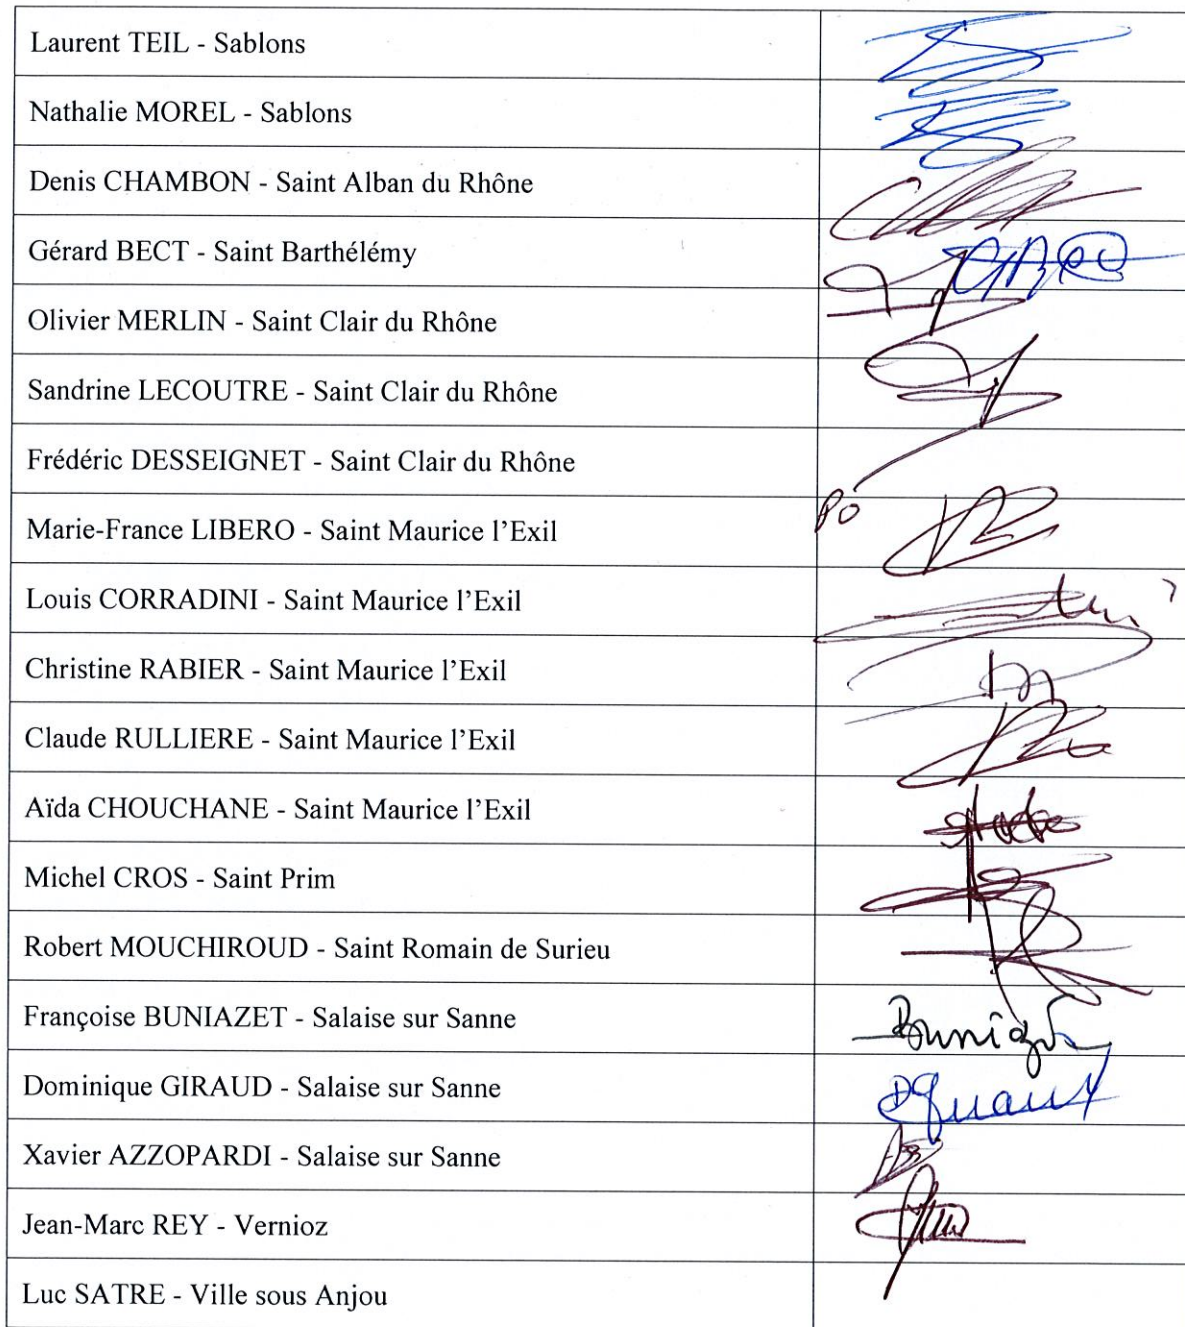 Laurent TEIL - Sablons
Nathalie MOREL - Sablons
Denis CHAMBON - Saint Alban du Rhône
Gérard BECT - Saint Barthélémy
Olivier MERLIN - Saint Clair du Rhône
Sandrine LECOUTRE - Saint Clair du Rhône
Frédéric DESSEIGNET - Saint Clair du Rhône
Marie-France LIBERO - Saint Maurice l’Exil
Po
Louis CORRADINI - Saint Maurice l’Exil
Christine RABIER - Saint Maurice l’Exil
Claude RULLIERE - Saint Maurice l’Exil
Aïda CHOUCHANE - Saint Maurice l’Exil
Michel CROS - Saint Prim
Robert MOUCHIROUD - Saint Romain de Surieu
Françoise BUNIAZET - Salaise sur Sanne
Dominique GIRAUD - Salaise sur Sanne
Xavier AZZOPARDI - Salaise sur Sanne
Jean-Marc REY - Vernioz
Luc SATRE - Ville sous Anjou